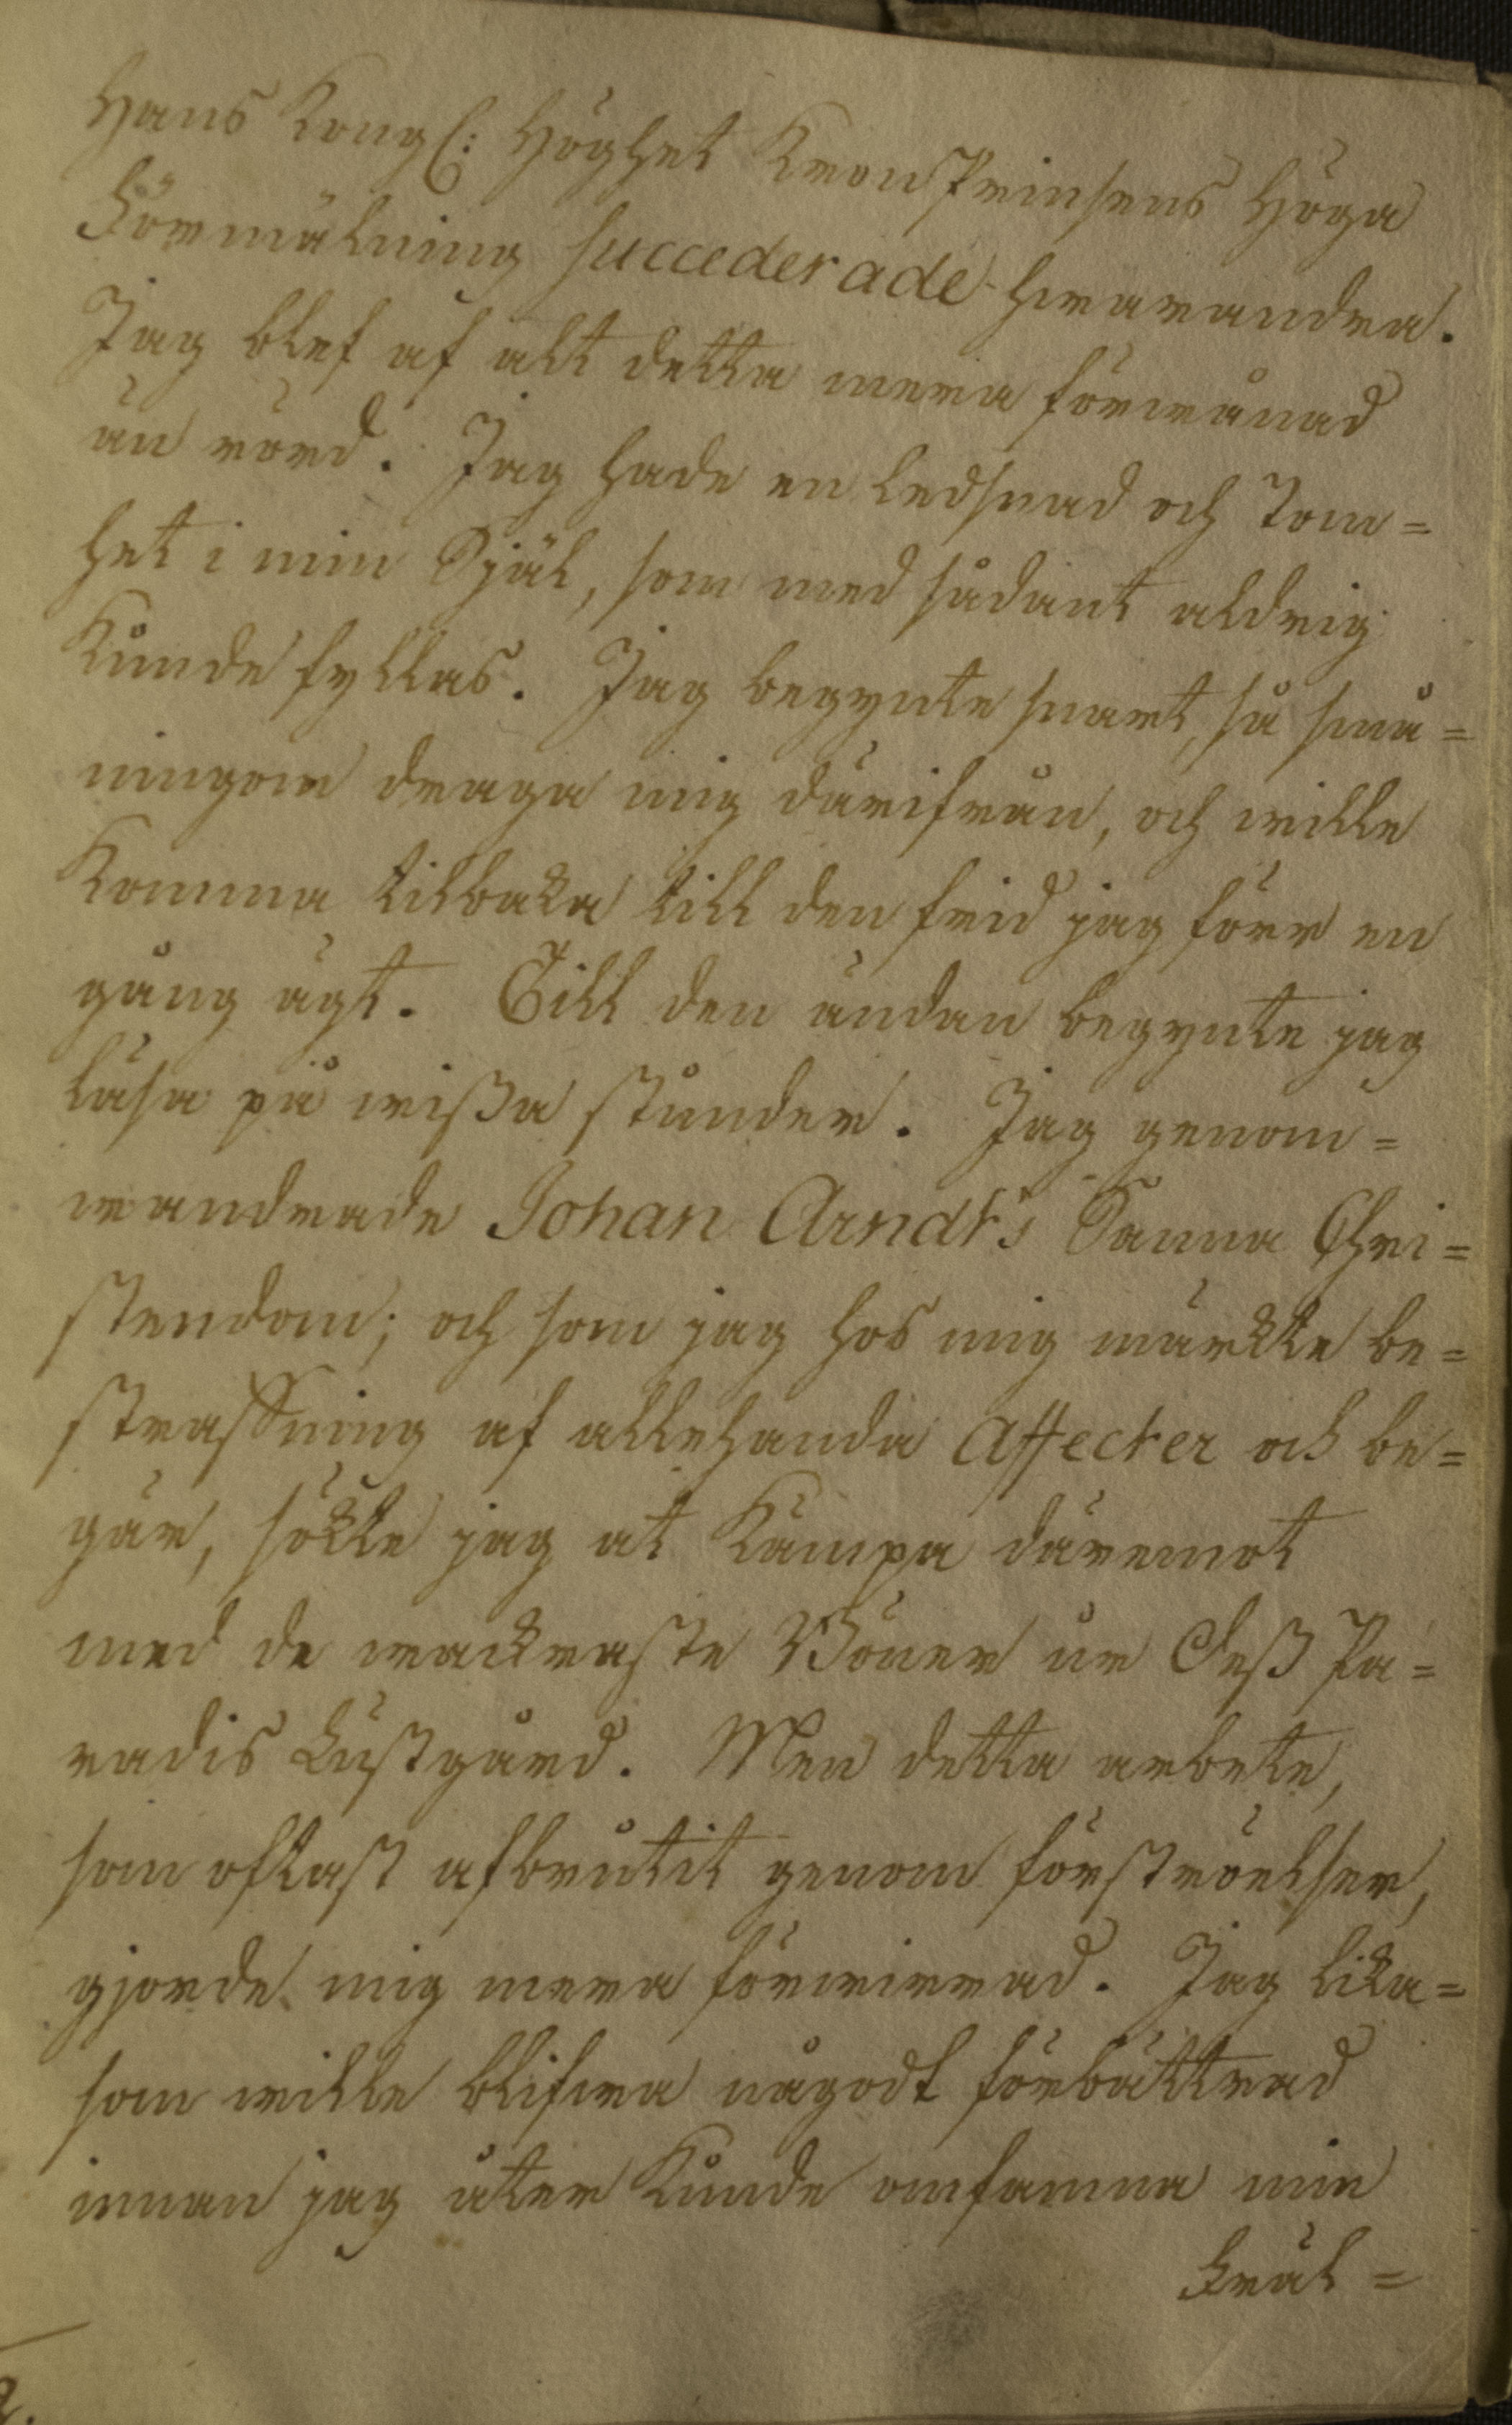 Hans Kongl: Höghet KronPrinsens Höga
Förmälning succederade hwarandra.
Jag blef af alt detta mera förwånad
än rörd. Jag hade en ledsnad och Tom=
het i min Själ, som med sådant aldrig
Kunde fyllas. Jag begynte snart, så små=
ningom draga mig därifrån, och wille
Komma tilbaka till den frid jag förr en
gång ägt. Till den ändan begynte jag
läsa på wißa stunder. Jag genom=
wandrade Johan Arndt's Sanna Chri=
stendom; och som jag hos mig märkte be=
straffning af allehanda Affecter och be=
gär, sökte jag at Kämpa däremot
med de wackraste Böner ur Deß Pa=
radis Lustgård. Men detta arbete,
som oftast afbrutit genom förströelser,
gjorde mig mera förwirrad. Jag lika=
som wille blifwa något förbättrad
innan jag åter Kunde omfamna min
Fräl=